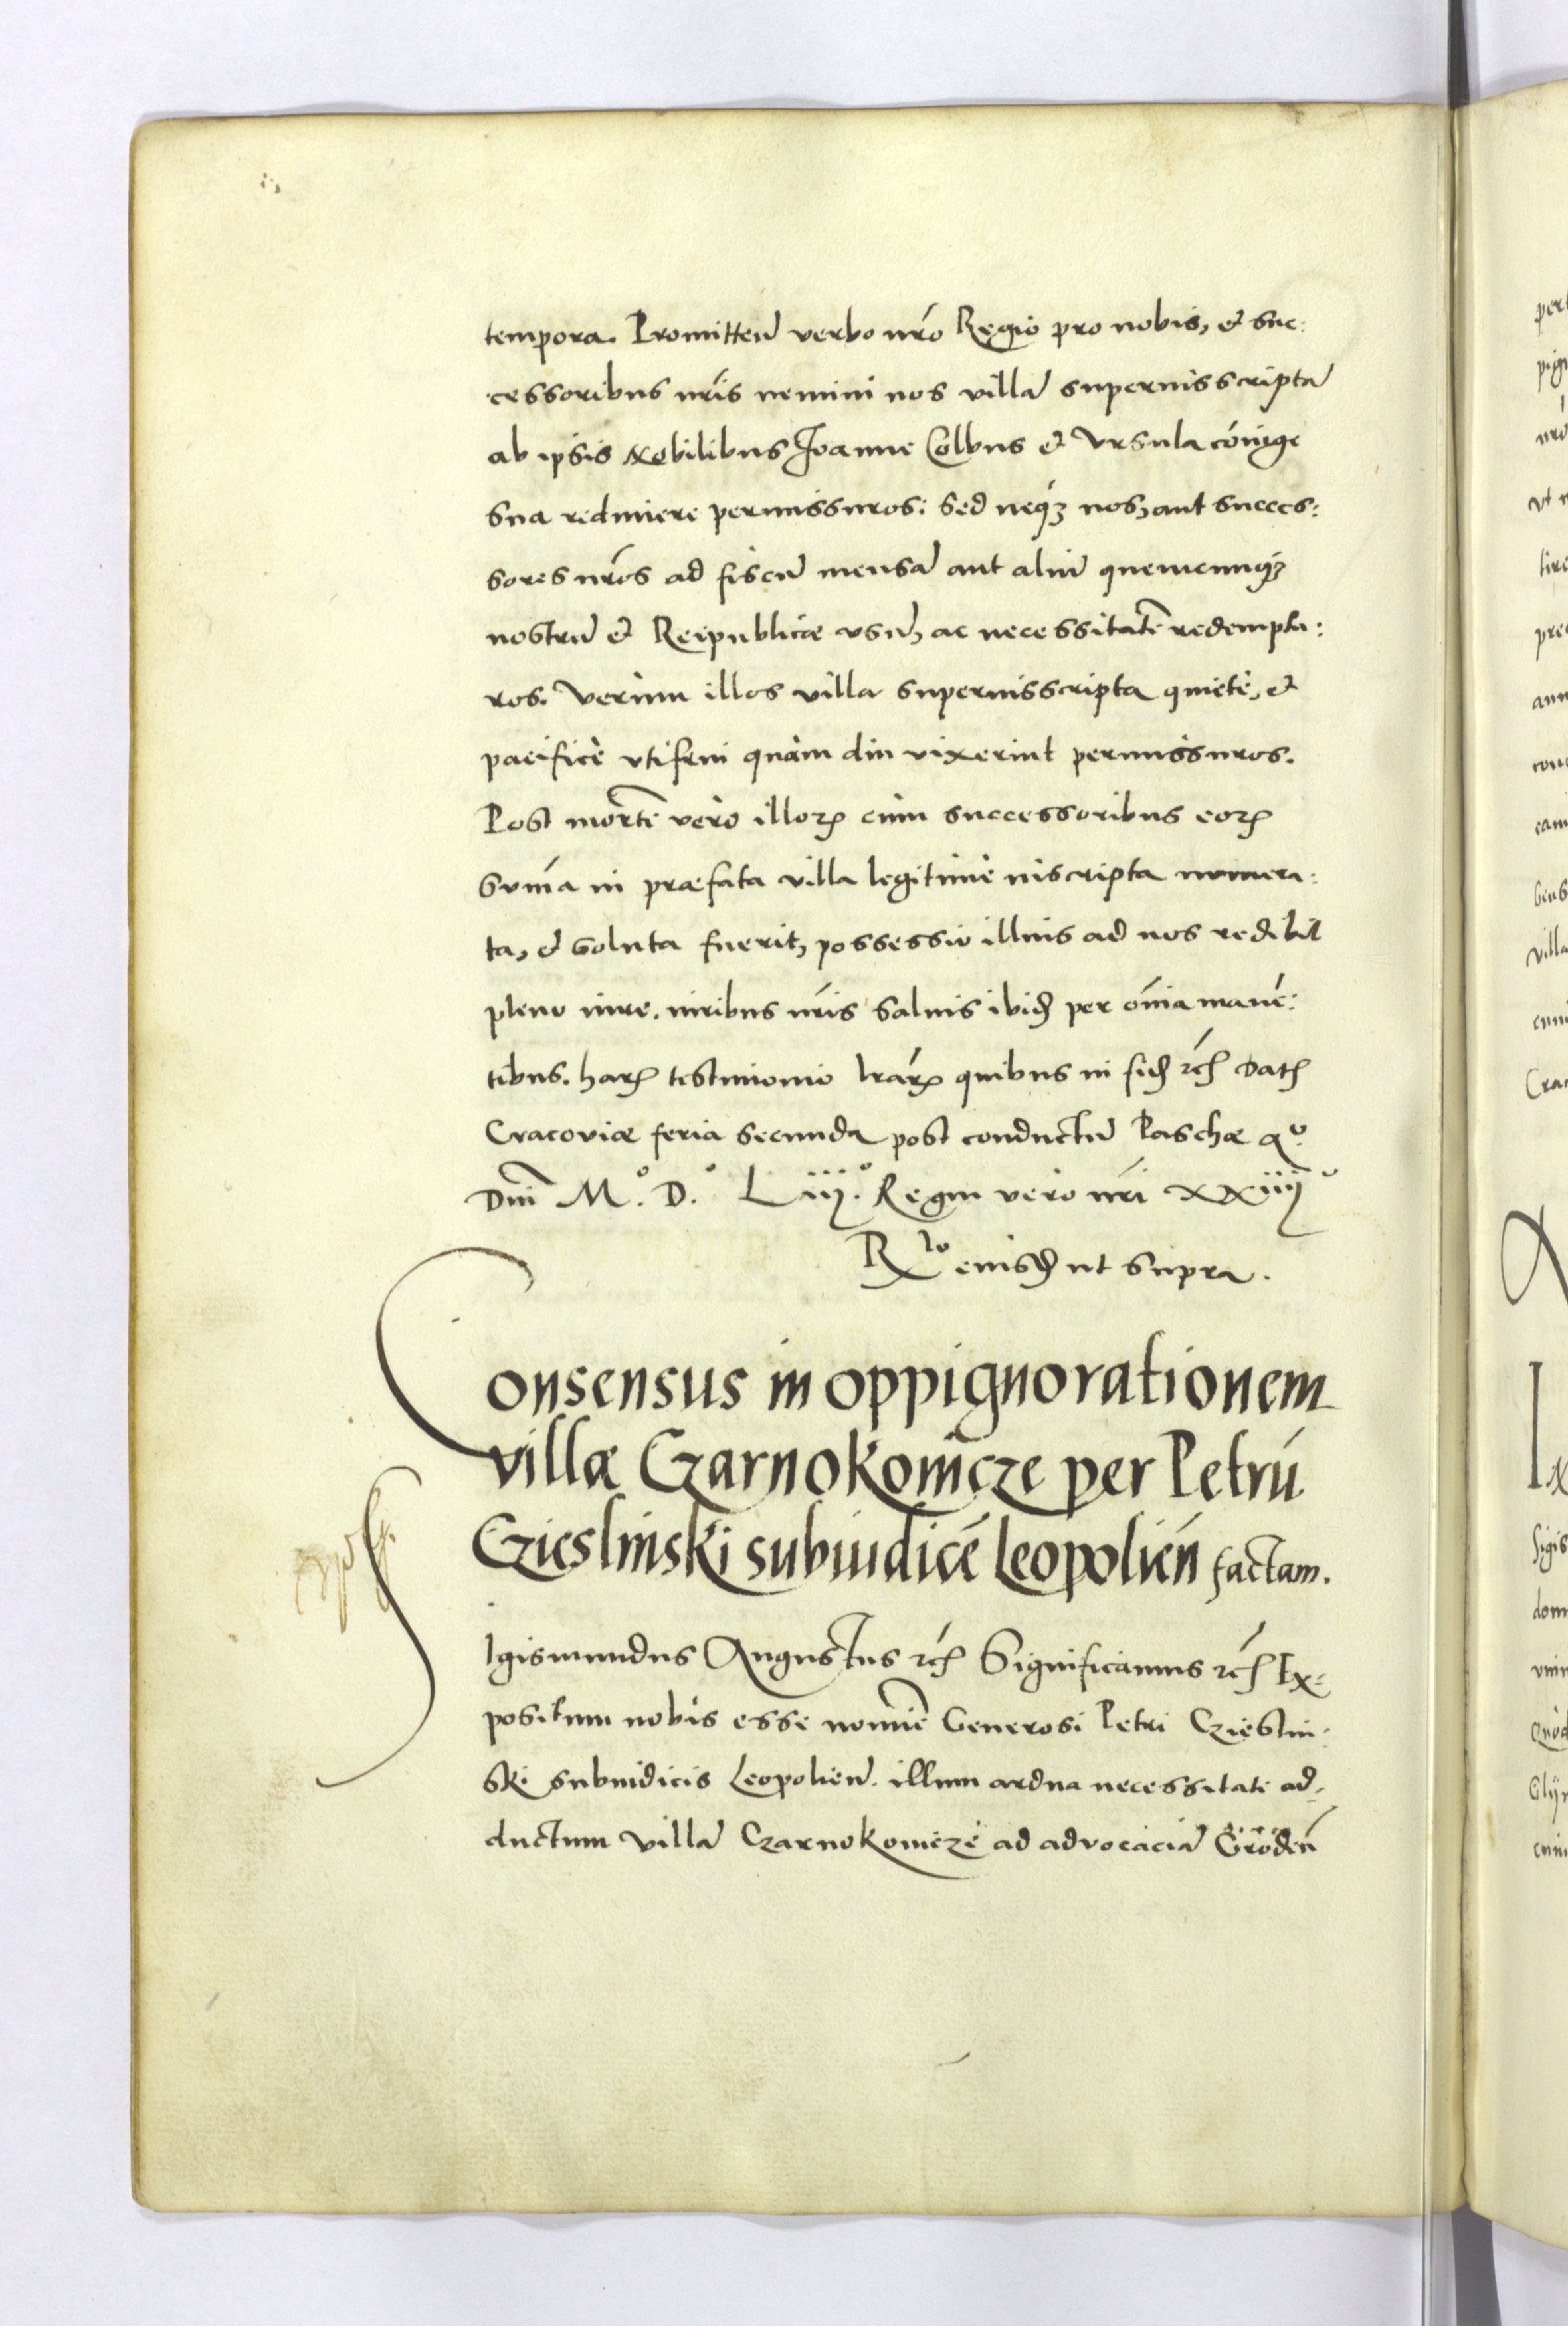 tempora. Promitteñ verbo nr̃o Regio pro nobis, et suc:
cessoribus nr̃is nemini nos villã superinsscriptã
ab ipsis Nobilibus Joanne Colbus et Vrsula cõniuge
sua redimere permissuros: Sed neqȝ nos, aut succes:
sores nr̃os ad fiscũ mensã aut aliũ quemcumqȝ
nostrũ et Reipublicæ vsũ, ac necessitatẽ redemptu:
ros. Verùm illos villa superinsscripta quiete, et
pacifice vtifrui quàm diu vixerint permissuros.
Post mortẽ verò illorꝝ cùm successoribus eorꝝ
Sum̃a in præfata villa legitime inscripta numera:
ta, et soluta fuerit, possessio illius ad nos redibit
pleno iure. iuribus nr̃is saluis ibid per om̃ia manẽ:
tibus. harꝝ testimonio lr̃arꝝ quibus in fid etc Dat
Cracoviæ feria secunda post conductũ Paschæ Aº.
Dnĩ Mº. D.º Liijº. Regni vero nr̃i xxiiijº
Rlo eiusd ut supra.
Consensus in oppignorationem
villæ Czarnokonicze per Petrũ
Czieslinski subiudicẽ Leopolieñ factam.
Sigismundus Augustus etc Significamus etc Ex:
positum nobis esse nomine Generosi Petri Czieslin:
ski subiudicis Leopolieñ. illum ardua necessitate ad:
ductum villã Czarnokonicze ad advocaciã Grodeñ